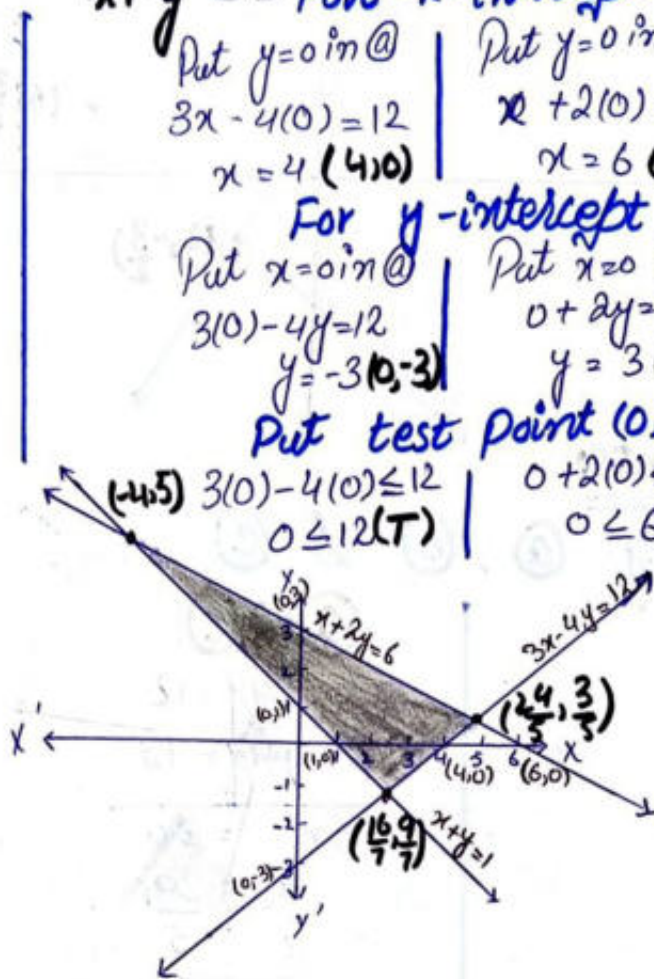 x+y
Put y=0 in ⓐ
3x-4(0)=12
x=4 (4,0)
Put y=0 in
x+2(0)
x=6 (
For y-intercept
Put x=0 in ⓐ
3(0)-4y=12
y=-3 (0,-3)
Put x=0
0+2y=
y=3
Put test Point (0,
3(0)-4(0)≤12
0≤12 (T)
0+2(0)
0≤6
(-4,5)
Y
(0,3)
x+2y=6
3x-4y=12
3
2
(0,1) 1
(24/5, 3/5)
X'
X
(1,0) 1
2
3
4
5
6
(4,0)
(6,0)
-1
-2
(16/7, 9/7)
x+y=1
(0,-3) -3
Y'